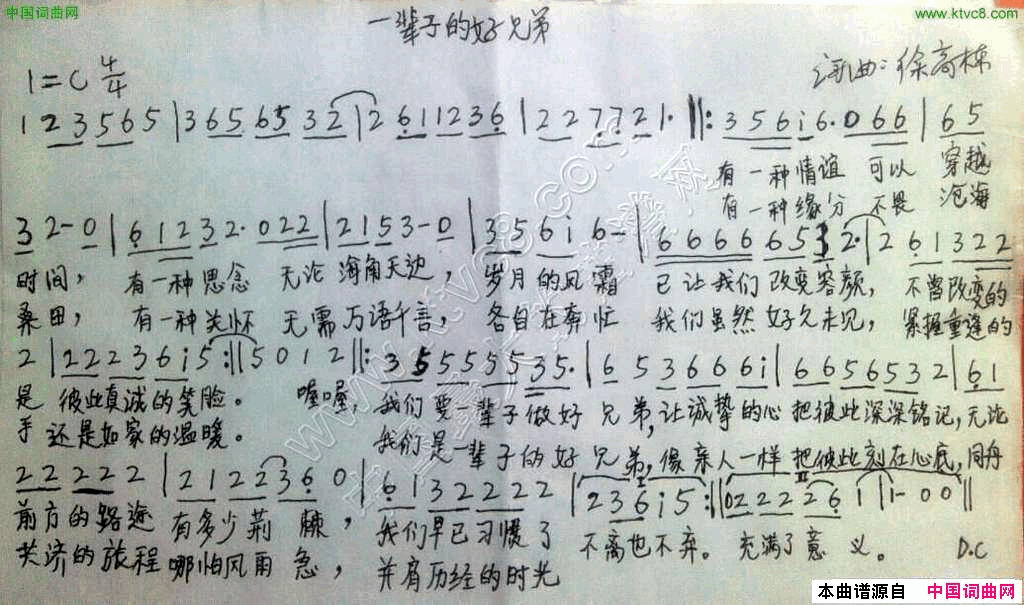 中国词曲网
www.ktvc8.com
一辈子的好兄弟
1=C 4/4
词曲:徐高栋
1 2 3 5 6 5 | 3 6 5 6 5 3 2 | 2 6 1 1 2 3 6 | 2 2 7 7 2 1 · ‖: 3 5 6 i 6 · 0 6 6 | 6 5
有一种情谊 可以 穿越
有一种缘分 不畏 沧海
3 2 - 0 | 6 1 2 3 2 · 0 2 2 | 2 1 5 3 - 0 | 3 5 6 i 6 - | 6 6 6 6 6 5 3 2 · | 2 6 1 3 2 2
时间, 有一种思念 无论 海角天边, 岁月的风霜 已让我们改变容颜, 不曾改变的
桑田, 有一种关怀 无需万语千言, 各自在奔忙 我们虽然好久未见, 紧握重逢的
2 | 2 2 2 3 6 i 5 :‖ 5 0 1 2 ‖: 3 5 5 5 5 5 3 5 · | 6 5 3 6 6 6 i | 6 6 5 6 5 3 2 | 6 1
是 彼此真诚的笑脸。 喔喔, 我们要一辈子做好兄弟,让诚挚的心 把彼此深深铭记,无论
手 还是如家的温暖。 我们是一辈子的好兄弟,像亲人一样 把彼此刻在心底,同舟
2 2 2 2 2 | 2 1 2 2 3 6 0 | 6 1 3 2 2 2 2 | 2 3 6 i 5 :‖ 0 2 2 2 2 6 1 | 1 - 0 0 ‖
前方的路途 有多少荆棘, 我们早已习惯了 不离也不弃。 充满了意义。 D.C
共济的旅程 哪怕风雨急, 并肩历经的时光
www.ktvc8.com
本曲谱源自 中国词曲网